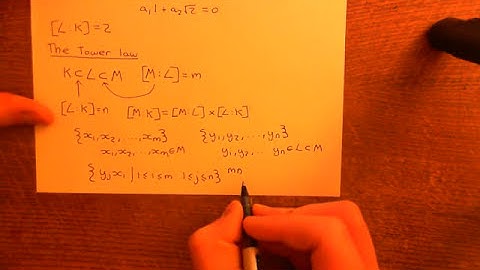 a₁1 + a₂√2 = 0
[L:K] = 2
The Tower law
K⊂L⊂M [M:L] = m
[L:K] = n [M:K] = [M:L] × [L:K]
{x₁, x₂, ..., xₘ} {y₁, y₂, ..., yₙ}
x₁, x₂, ..., xₘ∈M y₁, y₂, .. yₙ∈L⊂M
{yⱼxᵢ | 1≤i≤m 1≤j≤n} mn